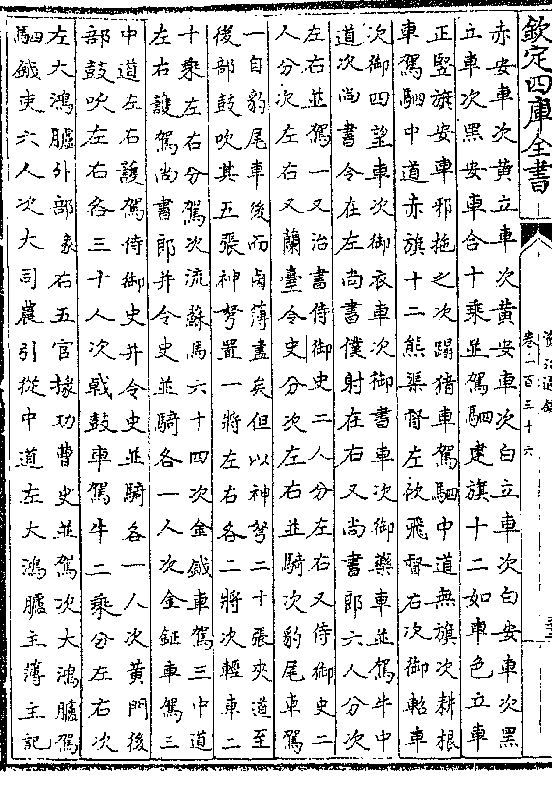 欽定四庫全書
資治通鑑
卷一百三十六
赤安車次黄立車次黄安車次白立車次白安車次黑
立車次黑安車合十乘並駕駟建旗十二如車色立車
正竪旗安車邪拖之次蹋猪車駕駟中道無旗次耕根
車駕駟中道赤旗十二熊渠督左佽飛督右次御軺車
次御四望車次御衣車次御書車次御藥車並駕牛中
道次尚書令在左尚書僕射在右又尚書郎六人分次
左右並駕一又治書侍御史二人分左右又侍御史二
人分次左右又蘭臺令史分次左右並騎次豹尾車駕
一自豹尾車後而鹵薄盡矣但以神弩二十張夾道至
後部鼓吹其五張神弩置一將左右各二將次輕車二
十乘左右分駕次流蘇馬六十四次金鉞車駕三中道
左右護駕尚書郎并令史並騎各一人次金鉦車駕三
中道左右護駕侍御史并令史並騎各一人次黄門後
部鼓吹左右各三十人次戟鼓車駕牛二乘分左右次
左大鴻臚外部掾右五官掾功曹史並駕次大鴻臚駕
駟鉞吏六人次大司農引從中道左大鴻臚主薄主記